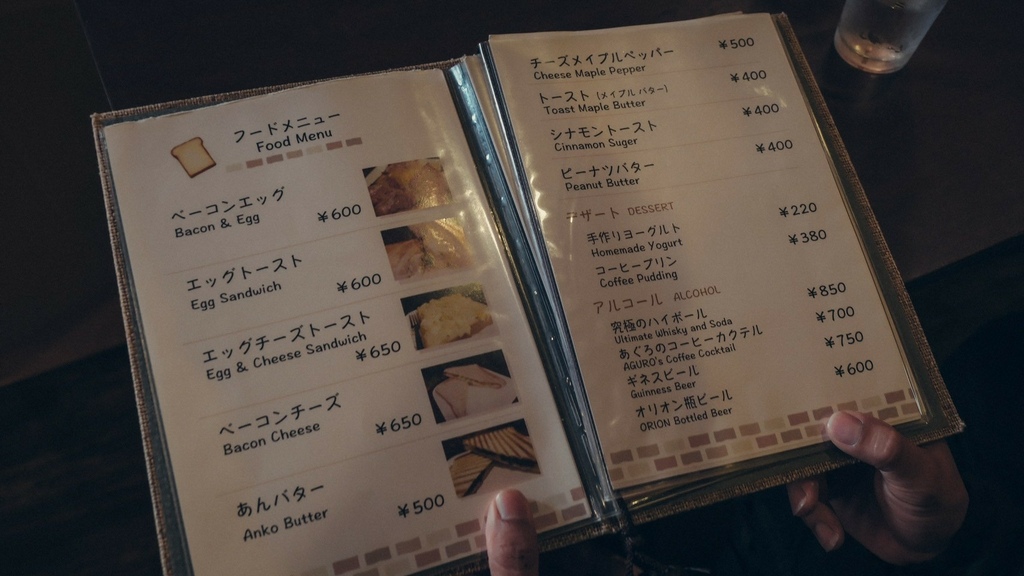 フードメニュー
Food Menu
ベーコンエッグ
Bacon & Egg
¥600
エッグトースト
Egg Sandwich
¥600
エッグチーズトースト
Egg & Cheese Sandwich
¥650
ベーコンチーズ
Bacon Cheese
¥650
あんバター
Anko Butter
¥500
チーズメイプルペッパー ¥500
Cheese Maple Pepper
トースト (メイプル バター) ¥400
Toast Maple Butter
シナモントースト ¥400
Cinnamon Suger
ピーナツバター ¥400
Peanut Butter
デザート DESSERT
手作りヨーグルト ¥220
Homemade Yogurt
コーヒープリン ¥380
Coffee Pudding
アルコール ALCOHOL
究極のハイボール ¥850
Ultimate Whisky and Soda
あぐろのコーヒーカクテル ¥700
AGURO's Coffee Cocktail
ギネスビール ¥750
Guinness Beer
オリオン瓶ビール ¥600
ORION Bottled Beer